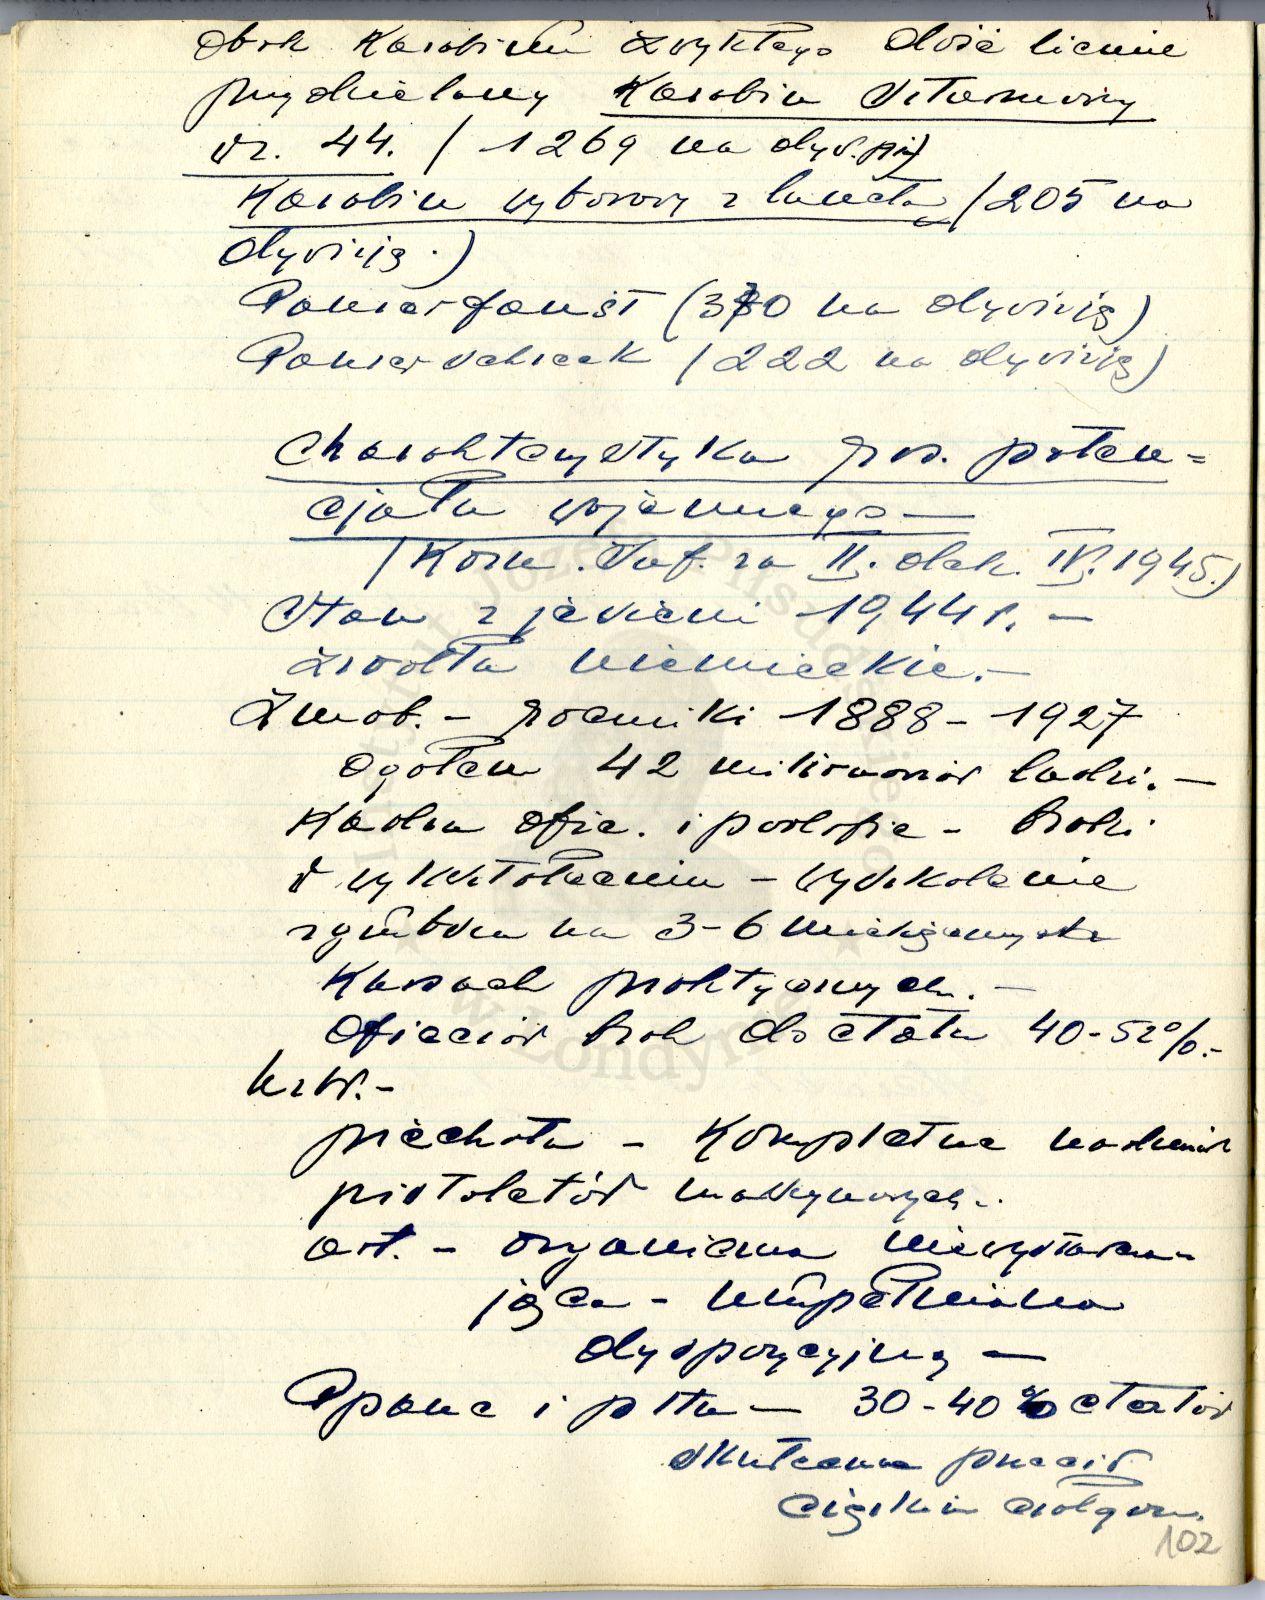 Obok karabinu zwykłego dość licznie
przydzielany Karabin szturmowy
wz. 44. (1269 na dyw. pie)
Karabin wyborowy z lunetą (205 na
dywizję.)
Panzerfaust (370 na dywizję)
Panzerschreck (222 na dywizję)
Charakterystyka ros. poten=
cjału wojennego —
(Kom. Inf. za II. dek. IV. 1945.)
Stan z jesieni 1944 r. —
źródła niemieckie. —
Zmob. - roczniki 1888 - 1927
Ogółem 42 milionów ludzi. —
Kadra ofic. i podofic - braki
w wykształceniu - wyszkolenie
na 3-6 miesięcznych
kursach praktycznych. —
Oficerów brak do etatu 40-52%. -
Uzbr. -
piechota - kompletne nadmiar
pistoletów maszynowych.
art. - organiczna niewystarcza-
jąca - uzupełniana
dyspozycyjną —
Ppanc i pltn — 30-40% etatów
skuteczna przeciw
ciężkim czołgom.
102
Instytut Józefa Piłsudskiego
w Londynie